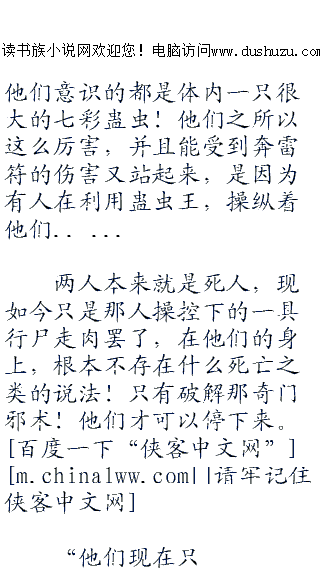 读书族小说网欢迎您！电脑访问www.dushuzu.com
他们意识的都是体内一只很
大的七彩蛊虫！他们之所以
这么厉害，并且能受到奔雷
符的伤害又站起来，是因为
有人在利用蛊虫王，操纵着
他们.. ...
两人本来就是死人，现
如今只是那人操控下的一具
行尸走肉罢了，在他们的身
上，根本不存在什么死亡之
类的说法！只有破解那奇门
邪术！他们才可以停下来。
[百度一下“侠客中文网”]
[m.chinalww.com||请牢记住
侠客中文网]
“他们现在只